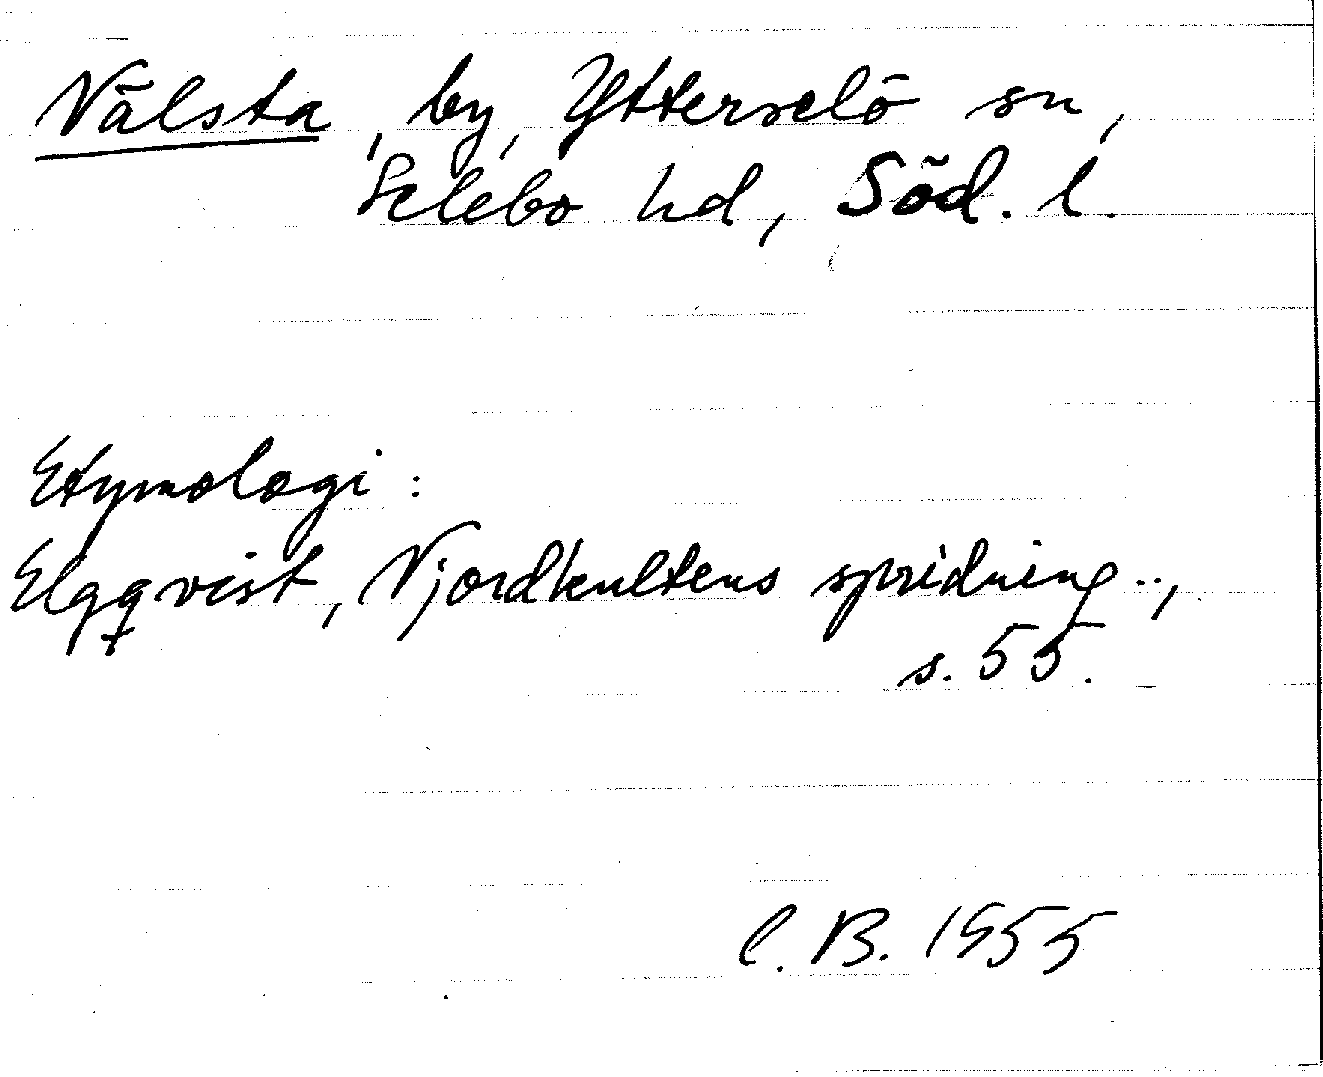 Nälsta, by, Ytterselö sn,
Selebo hd, Söd. l.
Etymologi:
Elgqvist, Njordkultens spridning..,
s. 55.
C. B. 1955